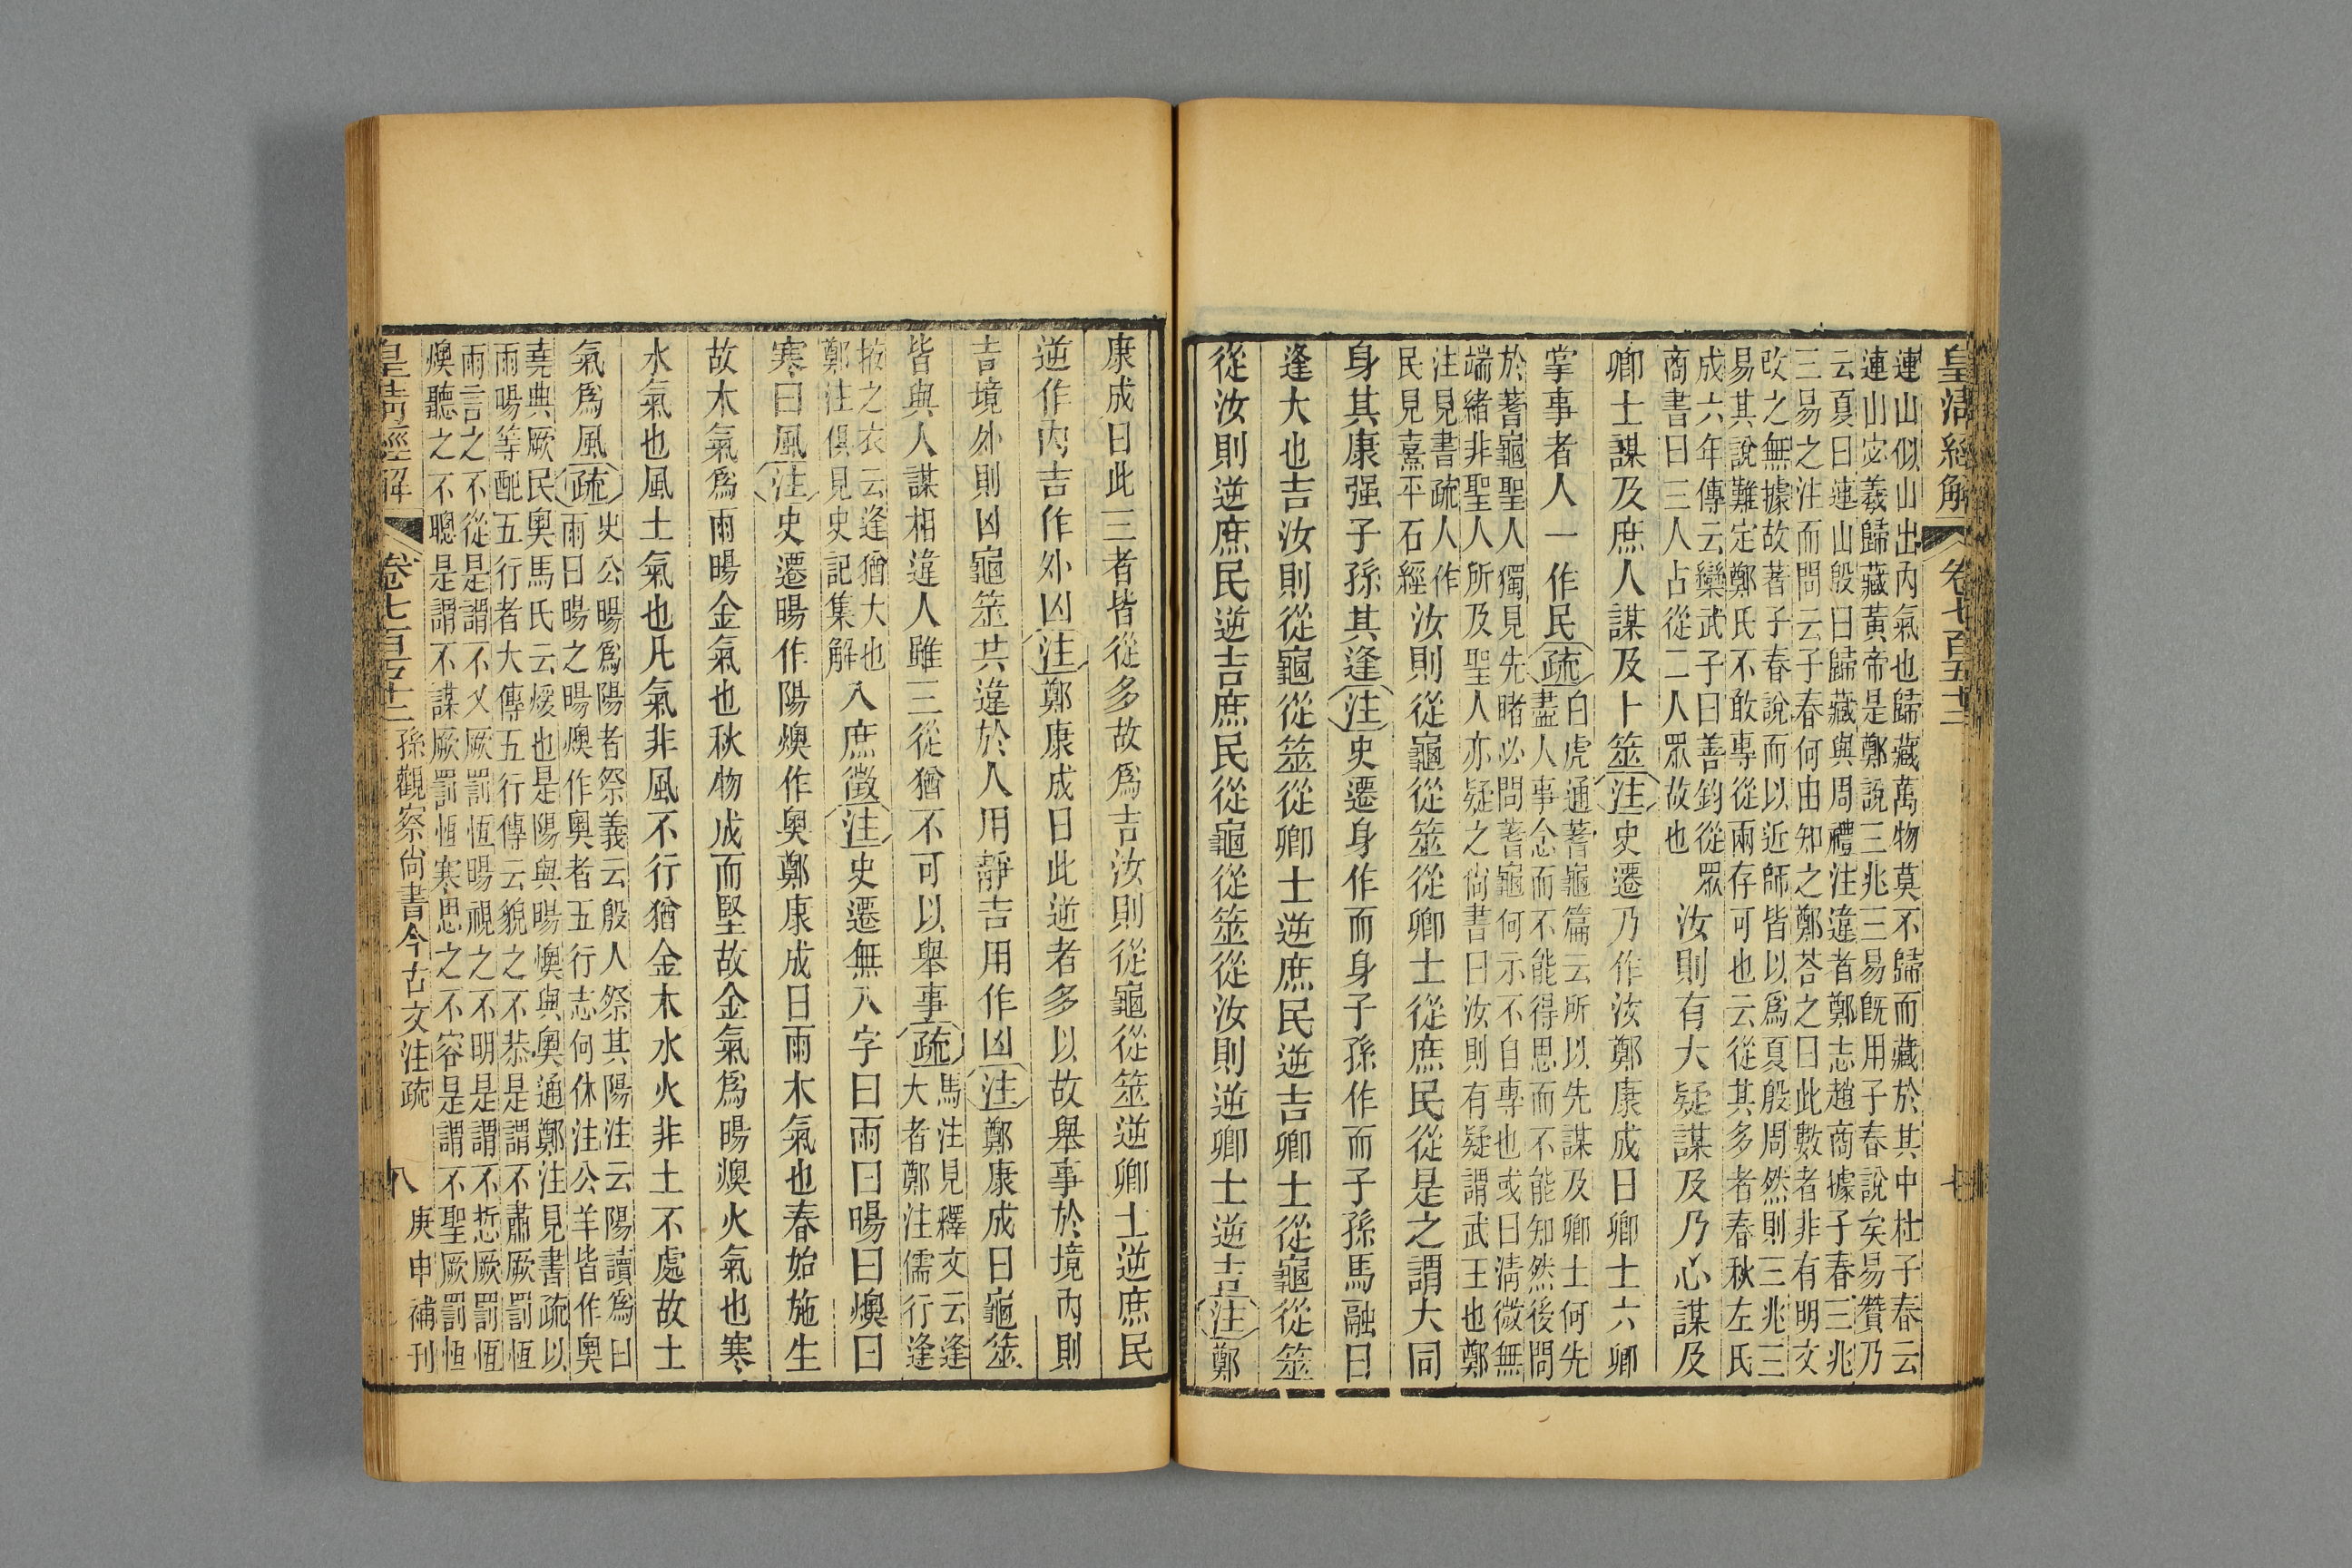 皇清經解
卷七百五十二
七
連山似山出內氣也歸藏萬物莫不歸而藏於其中杜子春云
連山宓羲歸藏黃帝是鄭說三兆三易旣用子春說矣易贊乃
云夏曰連山殷曰歸藏與周禮注違者鄭志趙商據子春三兆
三易之注而問云子春何由知之鄭荅之曰此數者非有明文
改之無據故著子春說而以近師皆以爲夏殷周然則三兆三
易其說難定鄭氏不敢專從兩存可也云從其多者春秋左氏
成六年傳云欒武子曰善鈞從眾
商書曰三人占從二人眾故也
汝則有大疑謀及乃心謀及
卿士謀及庶人謀及卜筮注史遷乃作汝鄭康成曰卿士六卿
掌事者人一作民疏
白虎通蓍龜篇云所以先謀及卿士何先
盡人事念而不能得思而不能知然後問
於蓍龜聖人獨見先睹必問蓍龜何示不自專也或曰淸微無
端緒非聖人所及聖人亦疑之尙書曰汝則有疑謂武王也鄭
注見書疏人作
民見熹平石經
汝則從龜從筮從卿士從庶民從是之謂大同
身其康强子孫其逢注史遷身作而身子孫作而子孫馬融曰
逢大也吉汝則從龜從筮從卿士逆庶民逆吉卿士從龜從筮
從汝則逆庶民逆吉庶民從龜從筮從汝則逆卿士逆吉注鄭
康成曰此三者皆從多故爲吉汝則從龜從筮逆卿士逆庶民
逆作內吉作外凶注鄭康成曰此逆者多以故舉事於境內則
吉境外則凶龜筮共違於人用靜吉用作凶注鄭康成曰龜筮
皆與人謀相違人雖三從猶不可以舉事疏
馬注見釋文云逢
大者鄭注儒行逢
掖之衣云逢猶大也
鄭注俱見史記集解
八庶徵注史遷無八字曰雨曰暘曰燠曰
寒曰風注史遷暘作陽燠作奧鄭康成曰雨木氣也春始施生
故木氣爲雨暘金氣也秋物成而堅故金氣爲暘燠火氣也寒
水氣也風土氣也凡氣非風不行猶金木水火非土不處故土
氣爲風疏
史公暘爲陽者祭義云殷人祭其陽注云陽讀爲曰
雨曰暘之暘燠作奧者五行志何休注公羊皆作奧
堯典厥民奧馬氏云煖也是陽與暘燠與奧通鄭注見書疏以
雨暘等配五行者大傳五行傳云貌之不恭是謂不肅厥罰恆
雨言之不從是謂不乂厥罰恆暘視之不明是謂不悊厥罰恆
燠聽之不聰是謂不謀厥罰恆寒思之不容是謂不聖厥罰恆
皇清經解
卷七百五十二
孫觀察尙書今古文注疏
八
庚申補刊